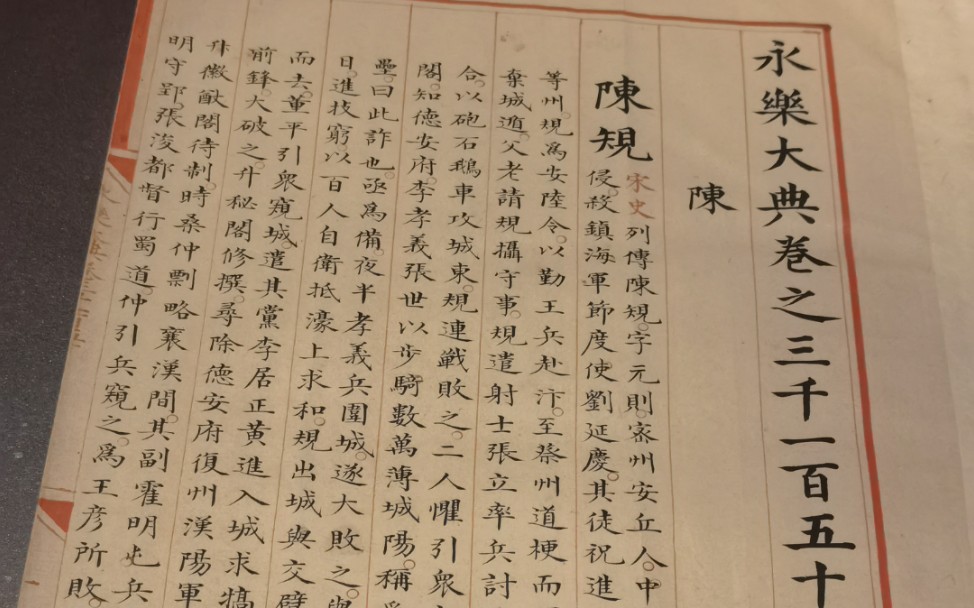 永樂大典卷之三千一百五十
陳
陳規
宋史列傳陳規。字元則。密州安丘人。中
侵。殺鎮海軍節度使劉延慶。其徒祝進
等州。規為安陸令。以勤王兵赴汴。至蔡州道梗而
棄城遁。父老請規攝守事。規遣射士張立率兵討
合。以砲石鵝車攻城東。規連戰敗之。二人懼引衆
閣。知德安府。李孝義張世以步騎數萬薄城。陽稱
壘。曰此詐也。亟為備。夜半孝義兵圍城。遂大敗之。與
日。進技窮。以百人自衛抵濠上求和。規出城與交臂
而去。董平引衆窺城。遣其黨李居正黃進入城求犒
前鋒。大破之。升秘閣修撰。尋除德安府復州漢陽軍
升徽猷閣待制。時桑仲剽略襄漢間。其副霍明屯兵
明守郢。張浚都督行蜀道。仲引兵窺之。為王彥所敗。